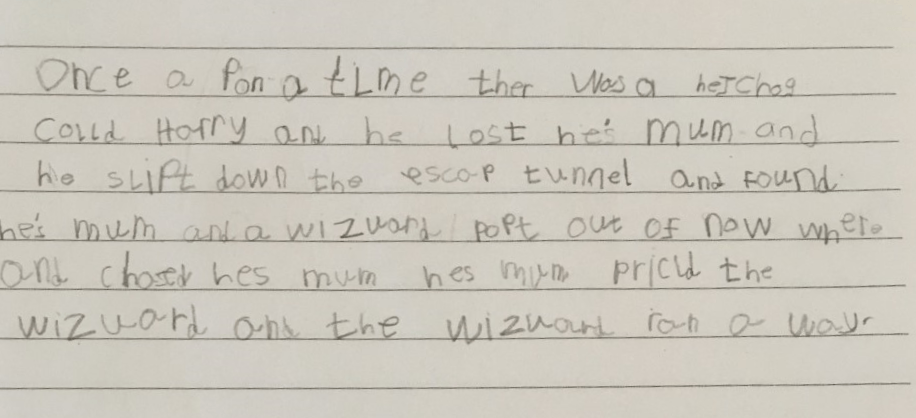 Once a Pon a tIme ther Was a herchog
Colld Harry and he lost he's mum and
he slift down the escap tunnel and found
he's mum and a wizuard popt out of now where
and chased hes mum hes mum pricld the
wizuard and the wizuard ran a way.